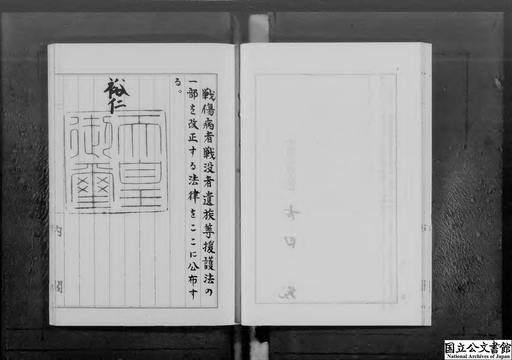 戦傷病者戦没者遺族等援護法の
一部を改正する法律をここに公布す
る。
裕仁
天皇
御璽
内閣
国立公文書館
National Archives of Japan